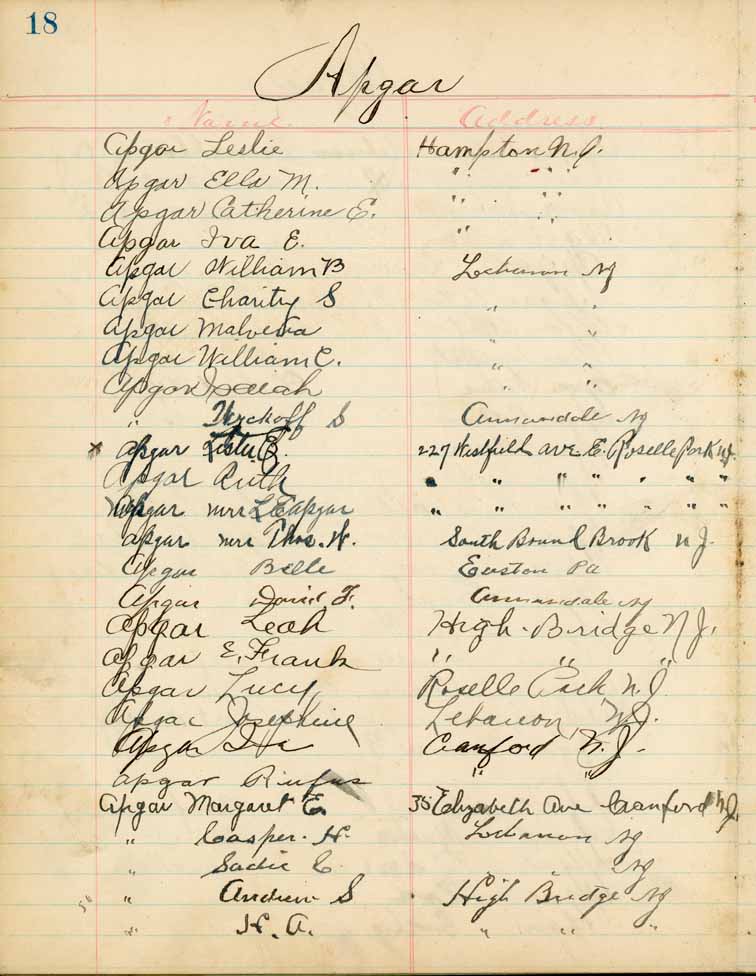 18
Apgar
Name Address
Apgar Leslie Hampton N.J.
Apgar Ella M. " " "
Apgar Catherine E. " " "
Apgar Iva E. "
Apgar William B Lebanon NJ
Apgar Charity S " "
Apgar Malvina " "
Apgar William C. " "
Apgar Isaiah " "
" Wyckoff S Annandale NJ
x Apgar Lester E. 227 Westfield ave E. Roselle Park N.J.
Apgar Ruth " " " " " " "
Apgar mrs L E Apgar " " " " " " "
Apgar mrs Thos. W. South Bound Brook N J.
Apgar Belle Easton Pa
Apgar David F. Annandale NJ
Apgar Leah High-Bridge N J.
Apgar E. Frank " " "
Apgar Lucy Roselle Park N.J.
Apgar Josephine Lebanon, N.J.
Apgar Cranford N.J.
Apgar Rufus " "
Apgar Margaret E. 35 Elizabeth Ave Cranford N.J.
" Casper. H. Lebanon NJ
" Sadie C. " NJ
" Andrew S High Bridge NJ
" H. A. " " "